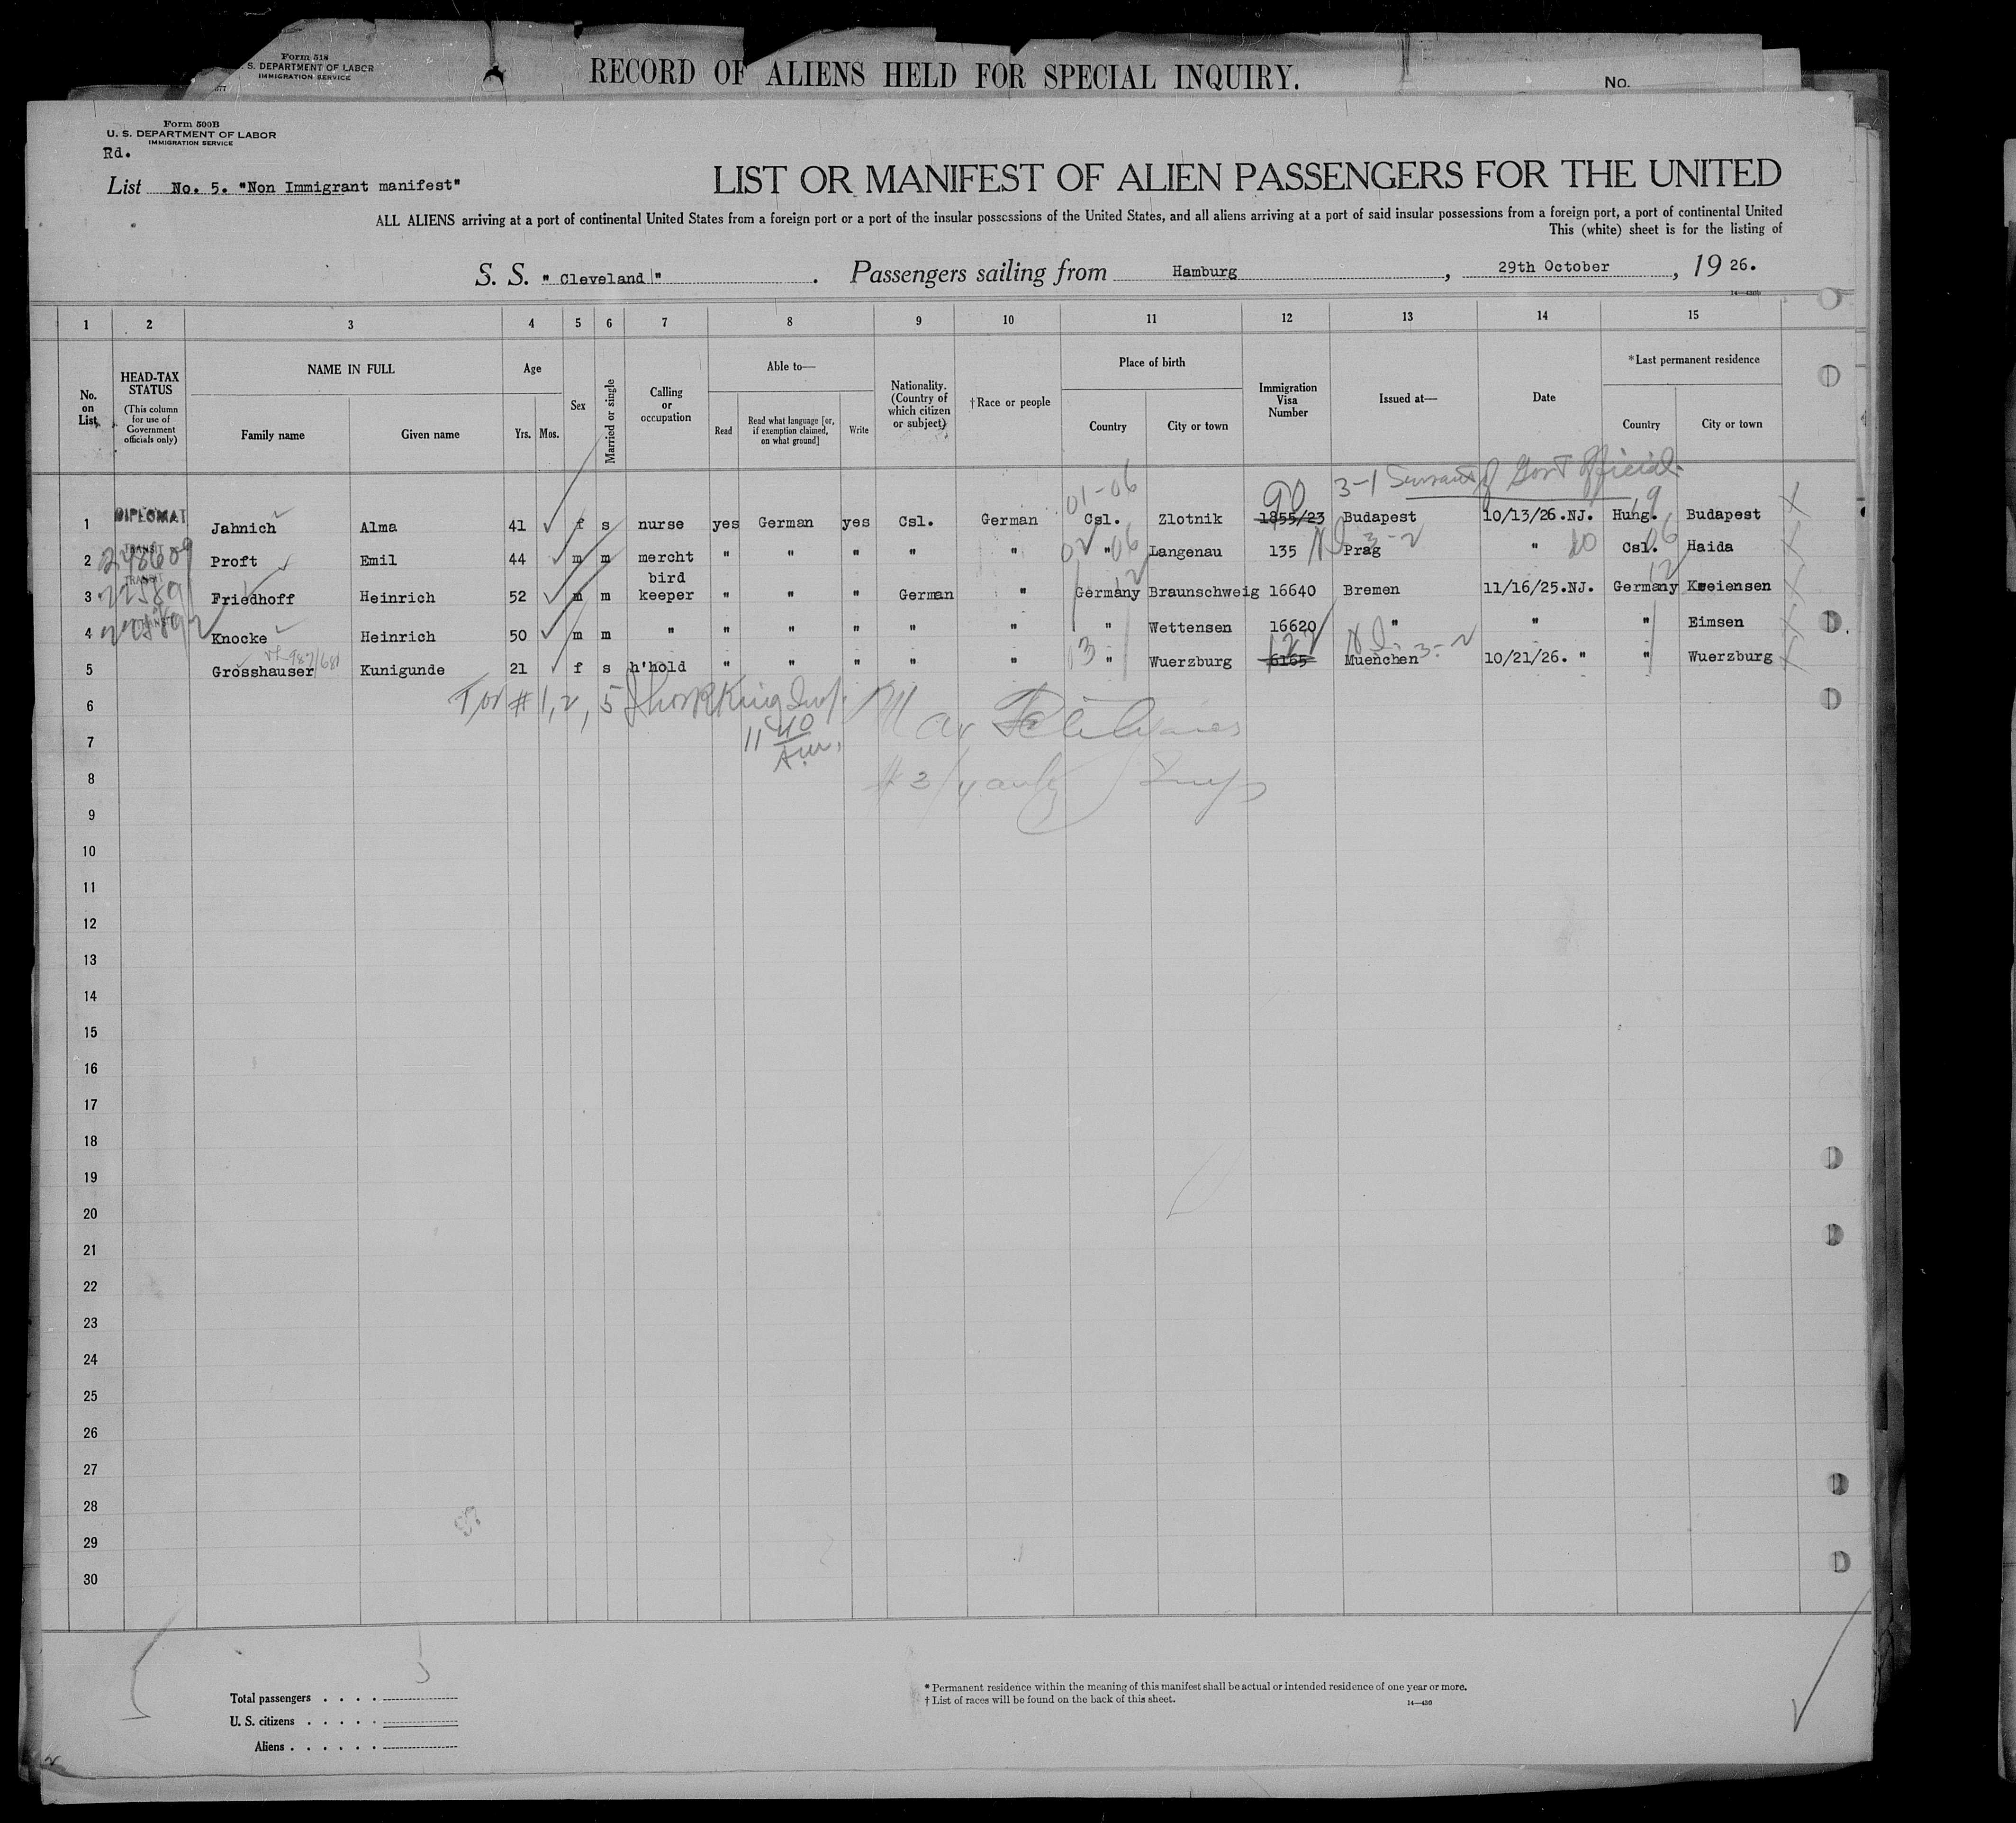 Form 518
S. DEPARTMENT OF LABOR
IMMIGRATION SERVICE
RECORD OF ALIENS HELD FOR SPECIAL INQUIRY.
No.
Form 500B
U. S. DEPARTMENT OF LABOR
IMMIGRATION SERVICE
Rd.
List No. 5. "Non Immigrant manifest"
LIST OR MANIFEST OF ALIEN PASSENGERS FOR THE UNITED
ALL ALIENS arriving at a port of continental United States from a foreign port or a port of the insular possessions of the United States, and all aliens arriving at a port of said insular possessions from a foreign port, a port of continental United
This (white) sheet is for the listing of
S. S. "Cleveland" . Passengers sailing from Hamburg , 29th October , 1926.
1 2 3 4 5 6 7 8 9 10 11 12 13 14 15
No. on List HEAD-TAX STATUS (This column for use of Government officials only) NAME IN FULL Family name Given name Age Yrs. Mos. Sex Married or single Calling or occupation Able to— Read Read what language [or, if exemption claimed, on what ground] Write Nationality. (Country of which citizen or subject) †Race or people Place of birth Country City or town Immigration Visa Number Issued at— Date *Last permanent residence Country City or town
3-1 Servant of Gov't Official
01-06 90 19
1 DIPLOMAT Jahnich Alma 41 f s nurse yes German yes Csl. German Csl. Zlotnik 1855/23 Budapest 10/13/26.NJ. Hung. Budapest
2 TRANSIT Proft Emil 44 m m mercht " " " " " " Langenau 135 Prag " Csl. Haida
3 TRANSIT Friedhoff Heinrich 52 m m bird keeper " " " German " Germany Braunschweig 16640 Bremen 11/16/25.NJ. Germany Kreiensen
4 Knocke Heinrich 50 m m " " " " " " " Wettensen 16620 " " " Eimsen
5 Grosshauser Kunigunde 21 f s h'hold " " " " " " Wuerzburg 6165 Muenchen 10/21/26. " " Wuerzburg
6
For #1, 2, 5
7
11 40 A.m.
8
9
10
11
12
13
14
15
16
17
18
19
20
21
22
23
24
25
26
27
28
29
30
Total passengers . . . .
U. S. citizens . . . . .
Aliens . . . . . .
* Permanent residence within the meaning of this manifest shall be actual or intended residence of one year or more.
† List of races will be found on the back of this sheet.
14—430